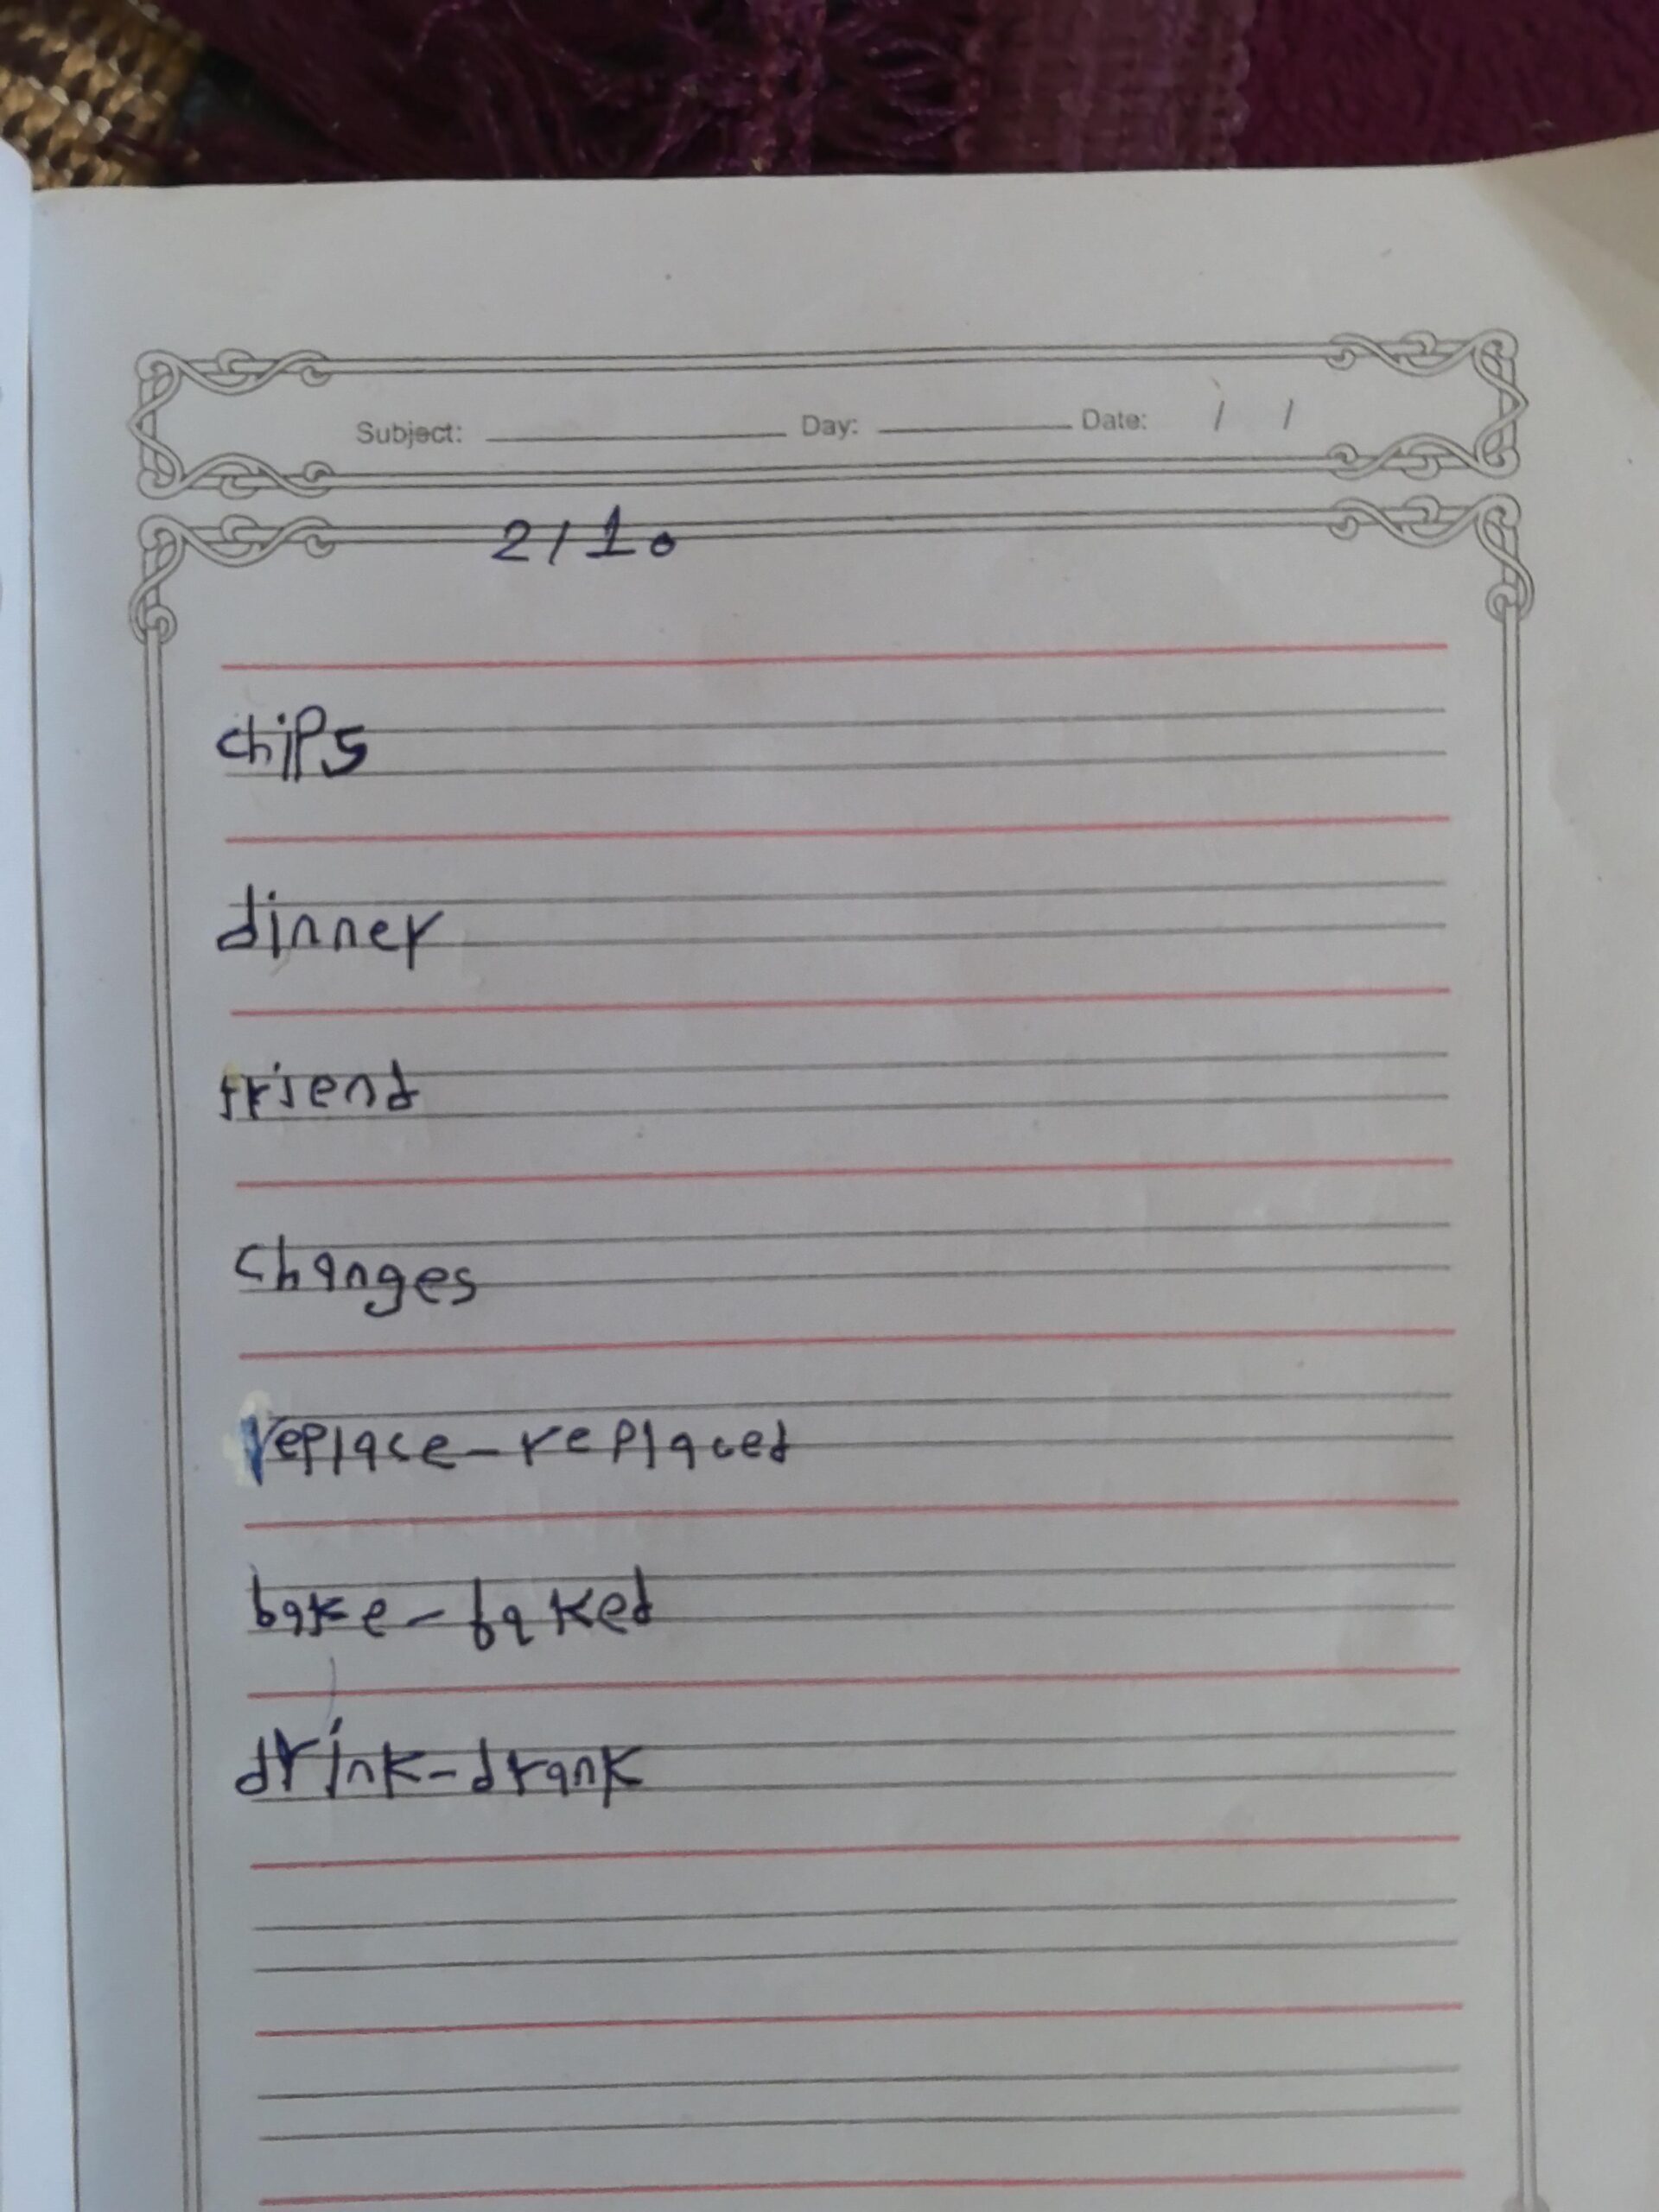 Subject: Day: Date: / /
2/10
chips
dinner
friend
changes
replace - replaced
bake - baked
drink - drank